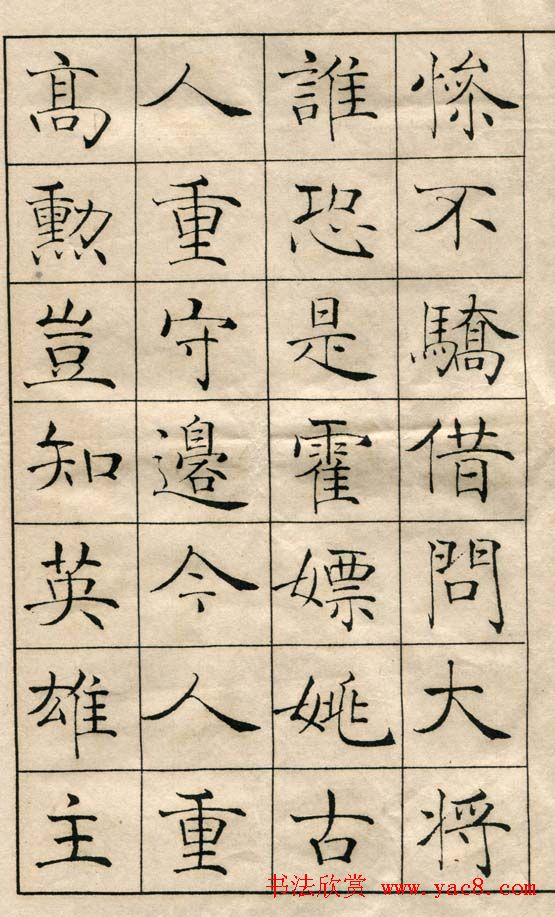 慘不驕借問大將
誰恐是霍嫖姚古
人重守邊今人重
高勳豈知英雄主
书法欣赏 www.yac8.com